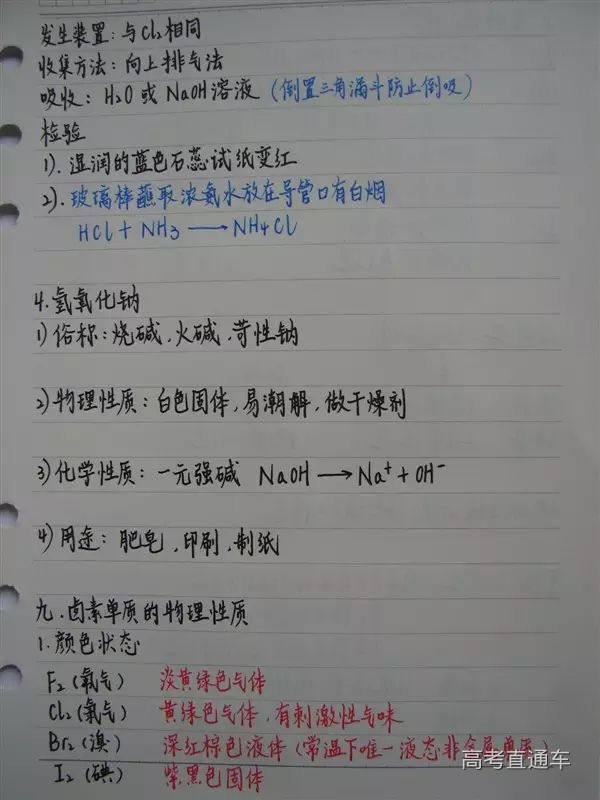 发生装置：与Cl₂相同
收集方法：向上排气法
吸收：H₂O 或 NaOH 溶液（倒置三角漏斗防止倒吸）
检验
1). 湿润的蓝色石蕊试纸变红
2). 玻璃棒蘸取浓氨水放在导管口有白烟
HCl + NH₃ ⟶ NH₄Cl
4. 氢氧化钠
1) 俗称：烧碱、火碱、苛性钠
2) 物理性质：白色固体，易潮解，做干燥剂
3) 化学性质：一元强碱 NaOH ⟶ Na⁺ + OH⁻
4) 用途：肥皂、印刷、制纸
九．卤素单质的物理性质
1. 颜色状态
F₂（氟气） 淡黄绿色气体
Cl₂（氯气） 黄绿色气体，有刺激性气味
Br₂（溴） 深红棕色液体（常温下唯一液态非金属单质）
I₂（碘） 紫黑色固体
高考直通车